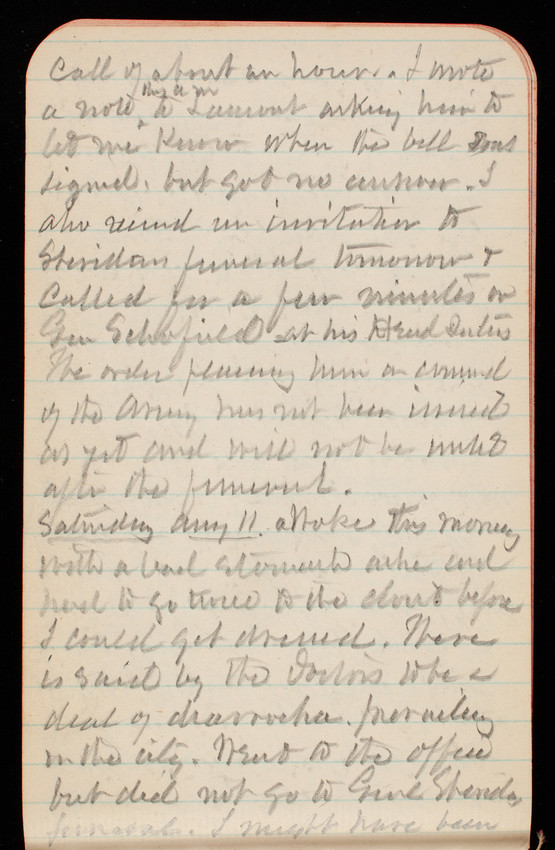 Call of about an hour. I wrote
this a m
a note to Lamont asking him to
let me Know when the bill was
signed, but got no answer. I
also recind an invitation to
Sheridans funeral tomorrow &
Called for a few minutes on
Gen Schofield at his Head Quters
The order placing him in command
of the Army has not been issued
as yet and will not be until
after the funeral.
Saturday Aug 11. Awoke this morning
with a bad stomach ache and
had to go twice to the closet before
I could get dressed. There
is said by the Doctors to be a
deal of diarrochea prevailing
in the city. Went to the office
but did not go to Genl Sheridan
funeral. I might have been